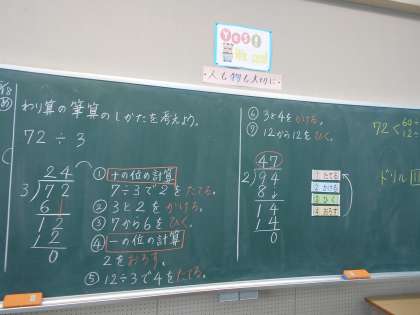 Yes!
We can!
人も物も大切に
め
わり算の筆算のしかたを考えよう。
72÷3
24
3)72
6
12
12
0
①十の位の計算
7÷3で2をたてる。
②3と2をかける。
③7から6をひく。
④一の位の計算
2をおろす。
⑤12÷3で4をたてる。
⑥3と4をかける。
⑦12から12をひく。
47
2)94
8
14
14
0
1 たてる
2 かける
3 ひく
4 おろす
72<60
12
ドリル